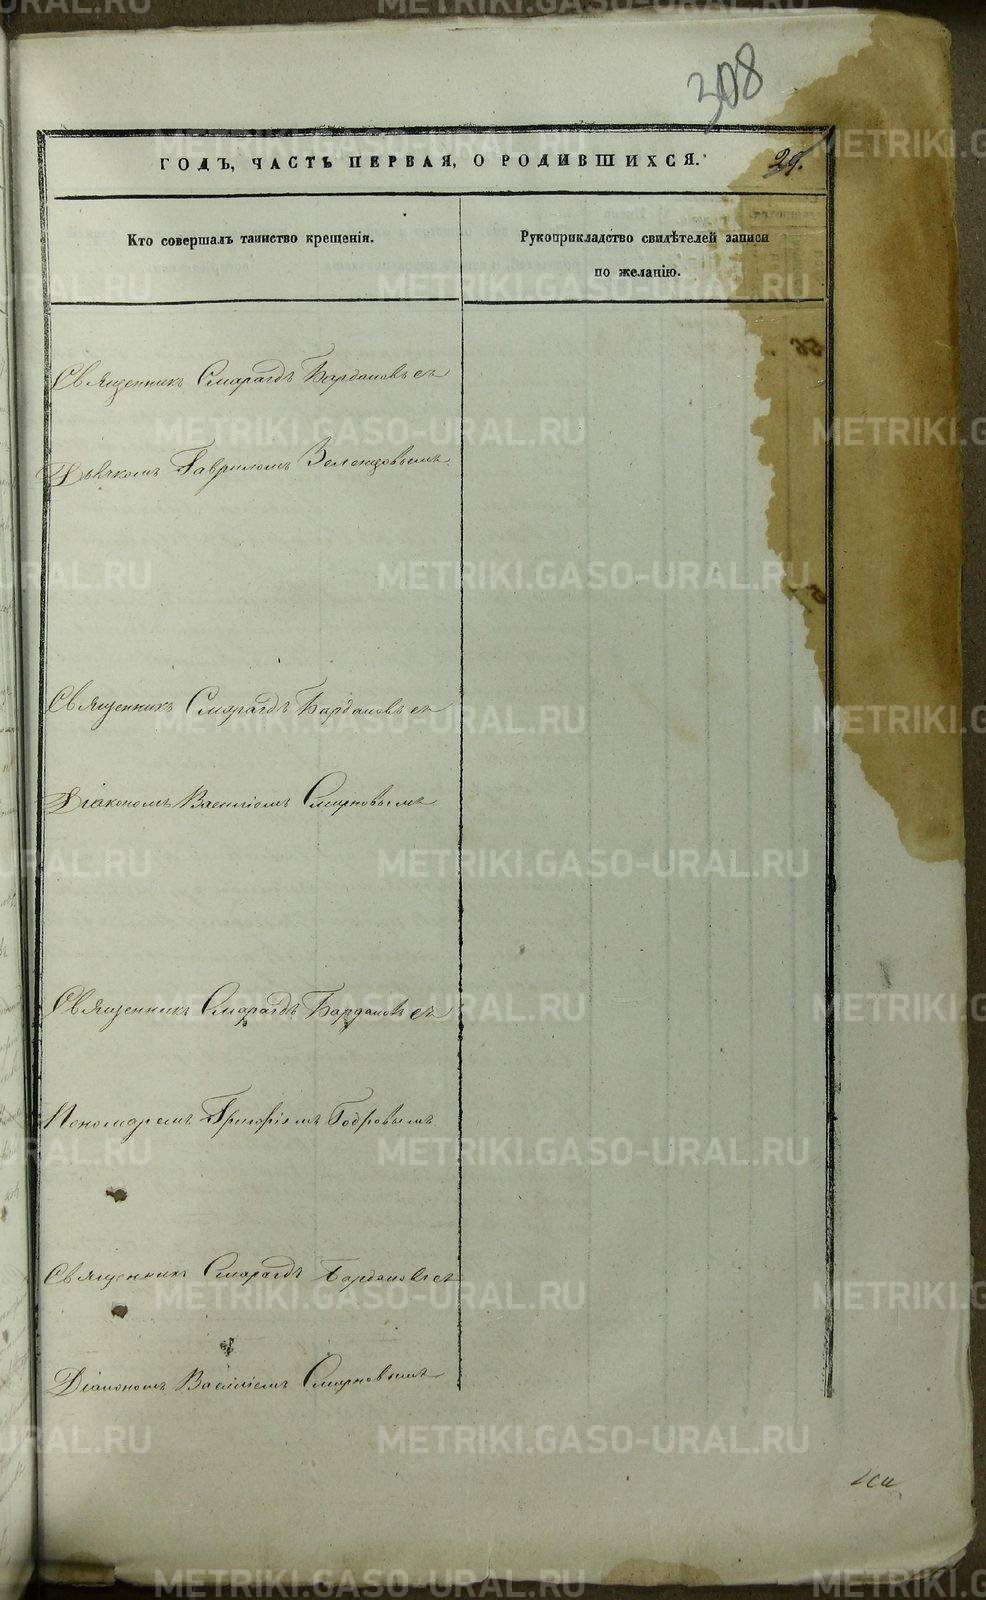 308
ГОДЪ, ЧАСТЬ ПЕРВАЯ, О РОДИВШИХСЯ.
29.
Кто совершалъ таинство крещенія.
Рукоприкладство свидѣтелей записи
по желанію.
Священникъ Смарагдъ Бардаковъ съ
Дьячкомъ Гавриломъ Зеленцовымъ
Священникъ Смарагдъ Бардаковъ съ
Діакономъ Василіемъ Смирновымъ
Священникъ Смарагдъ Бардаковъ съ
Пономаремъ Григоріемъ
Священникъ Смарагдъ Бардаковъ съ
Діакономъ Василіемъ Смирновымъ
METRIKI.GASO-URAL.RU